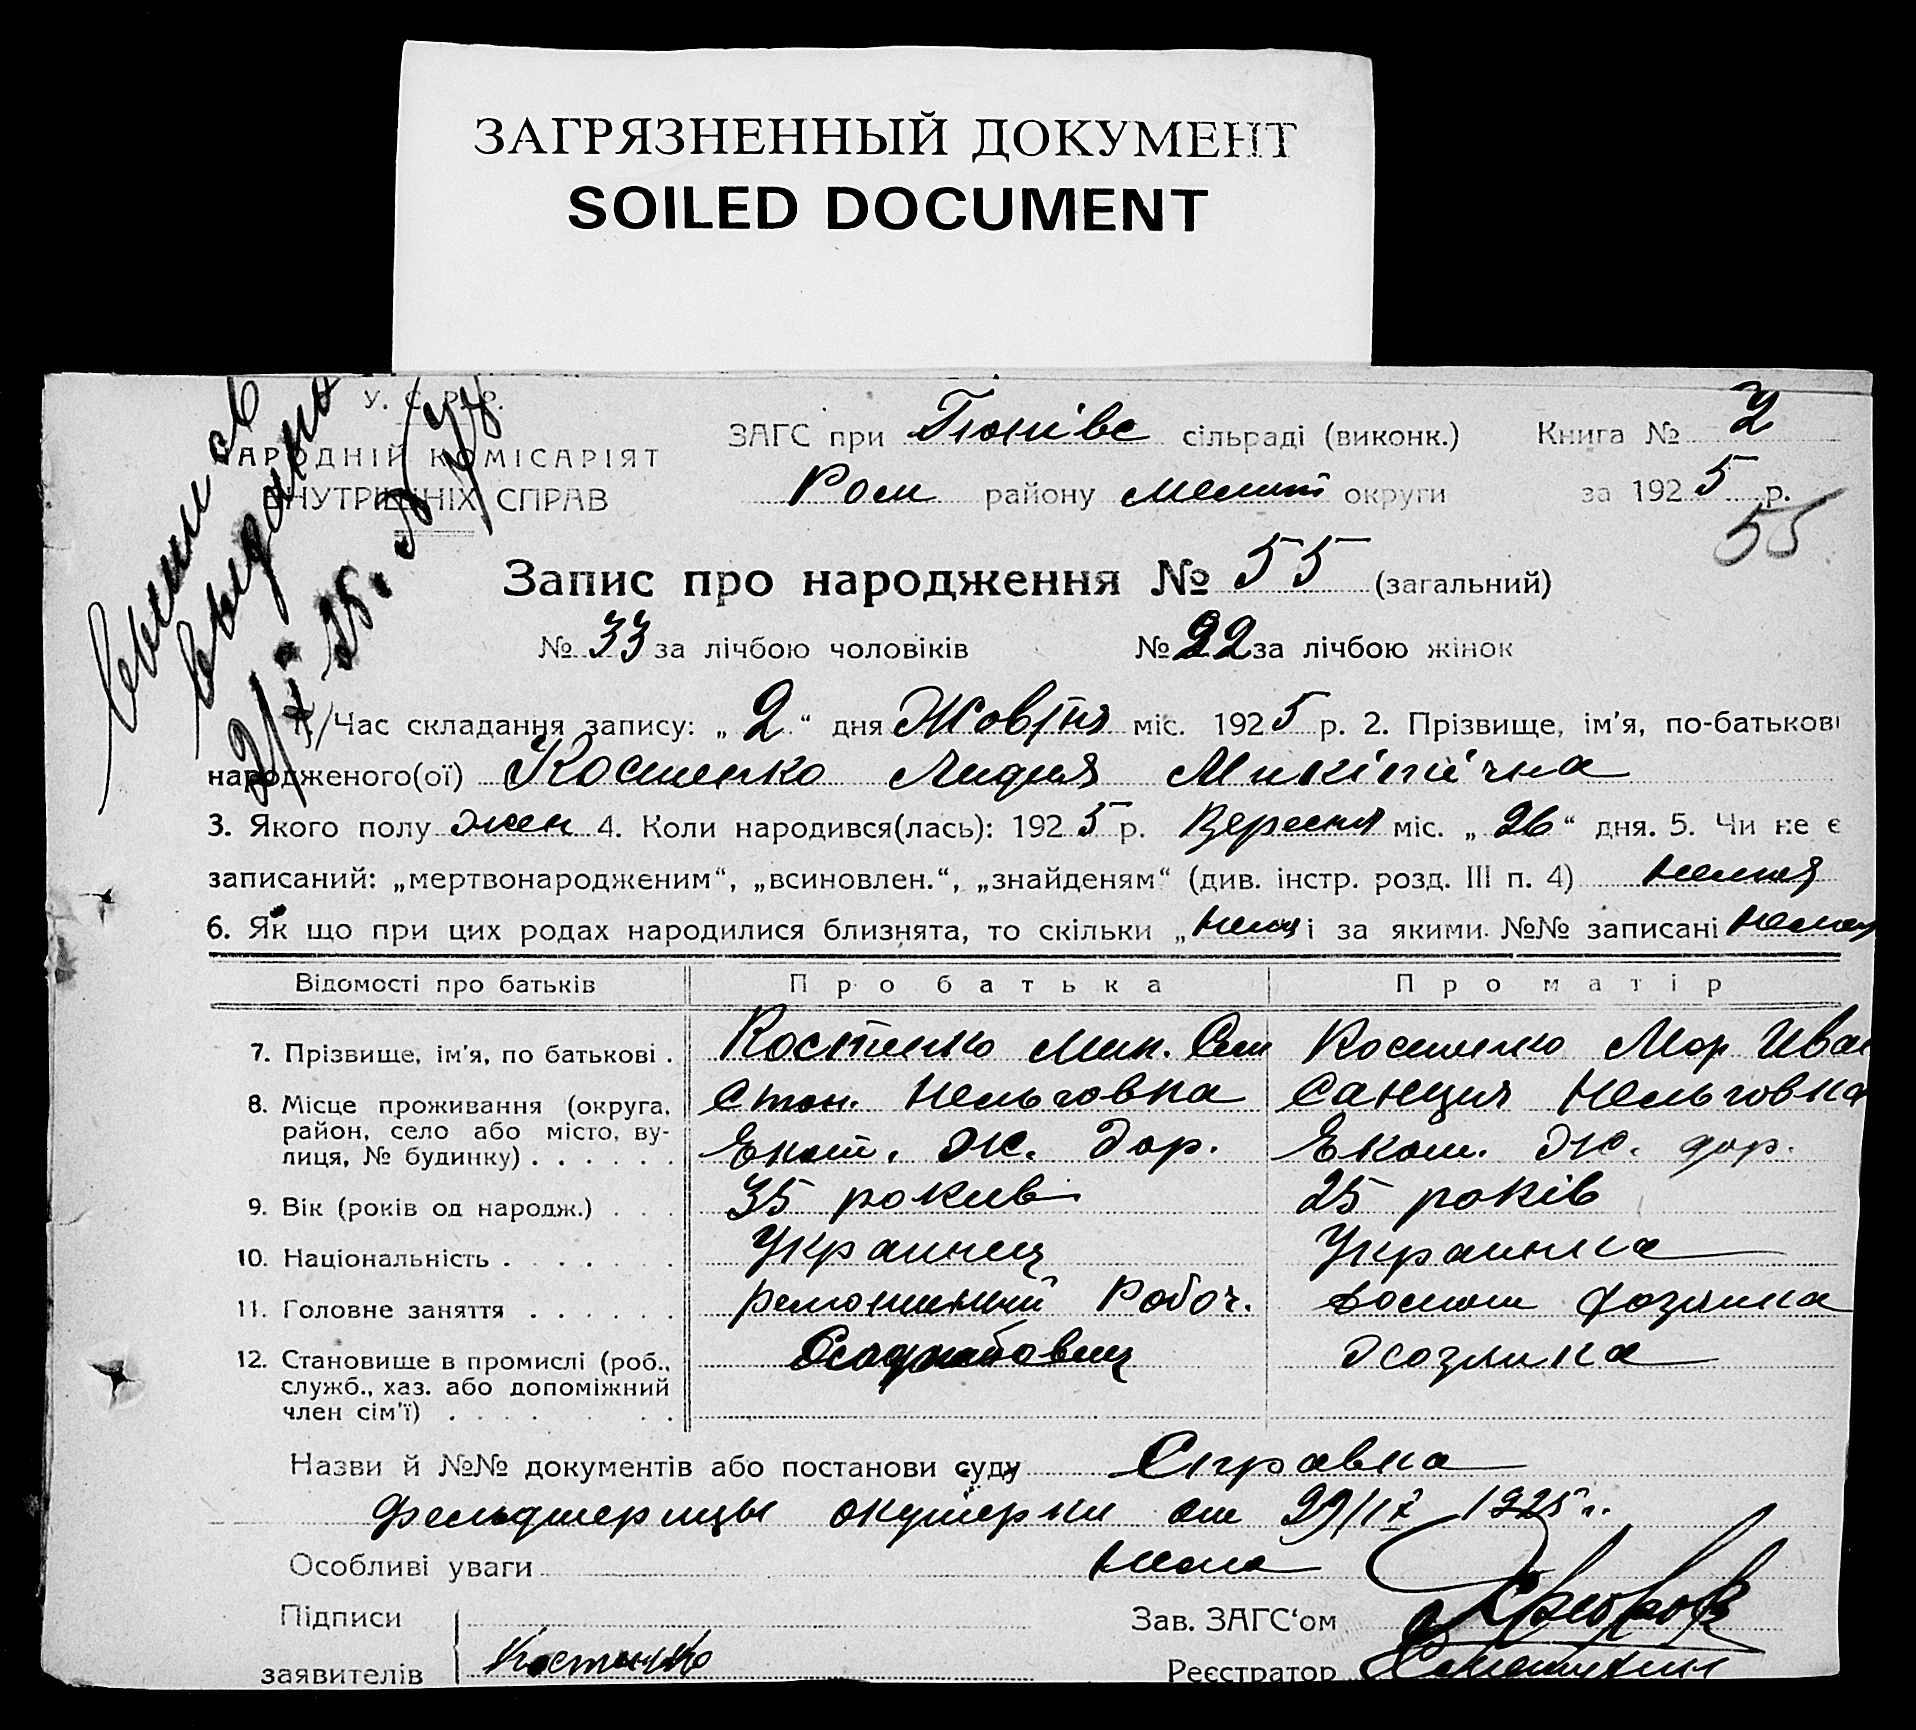 ЗАГРЯЗНЕННЫЙ ДОКУМЕНТ
SOILED DOCUMENT
У. С. Р. Р.
НАРОДНІЙ КОМІСАРІЯТ
ВНУТРІШНІХ СПРАВ
ЗАГС при сільраді (виконк.) Книга № 2
Ром району Мелит округи за 1925 р.
55
Запис про народження № 55 (загальний)
№ 33 за лічбою чоловіків № 22 за лічбою жінок
1/Час складання запису: „ 2 “ дня Жовтня міс. 1925 р. 2. Прізвище, ім’я, по-батькові
народженого(ої) Костенко Лидия Микітічна
3. Якого полу жен 4. Коли народився(лась): 1925 р. Вересня міс. „ 26 “ дня. 5. Чи не є
записаний: „мертвонародженим“, „всиновлен.“, „знайденям“ (див. інстр. розд. III п. 4) немая
6. Як що при цих родах народилися близнята, то скільки „ немая і за якими №№ записані немая
Відомості про батьків Про батька Про матір
7. Прізвище, ім’я, по батькові . Костенко Мик. Сем Костенко Мар Ива
8. Місце проживання (округа, Стан. Нельговка Санция Нельговка
район, село або місто, ву-
лиця, № будинку) . . . . . . Екат. Ж. Дор. Екат. Ж. дор.
9. Вік (років од народж.) . . . 35 рокив 25 років
10. Національність . . . . . . . Украинец Украинка
11. Головне заняття . . . . . . ремонтний Робоч. домаш хозяика
12. Становище в промислі (роб., хозяика
служб., хаз. або допоміжний
член сім’ї) . . . . . .
Назви й №№ документів або постанови суду Справка
фельдшерицы окушерки от 29/IX 1925 г.
Особливі уваги нема
Підписи Зав. ЗАГС‘ом
заявителів Костенко Реєстратор